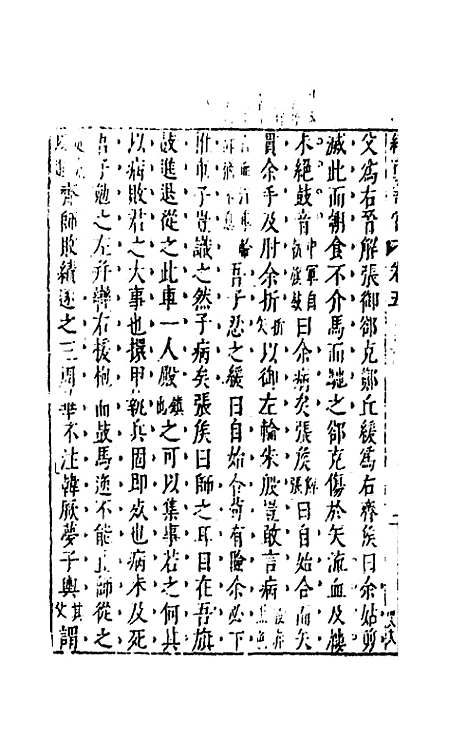 父爲右晉解張御郤克鄭丘緩爲右齊侯曰余姑剪
滅此而朝食不介馬而馳之郤克傷於矢流血及屨
未絕鼓音中軍自執旗鼓曰余病矣張侯解張曰自始合而矢
貫余手及肘余折折矢以御左輪朱殷豈敢言病
吾子忍之緩曰自始合苟有險余必下
推車子豈識之然子病矣張侯曰師之耳目在吾旗
鼓進退從之此車一人殿鎮也之可以集事若之何其
以病敗君之大事也擐甲執兵固即死也病未及死
吾子勉之左并轡右援枹而鼓馬逸不能止師從之
齊師敗績逐之三周華不注韓厥夢子輿其父謂